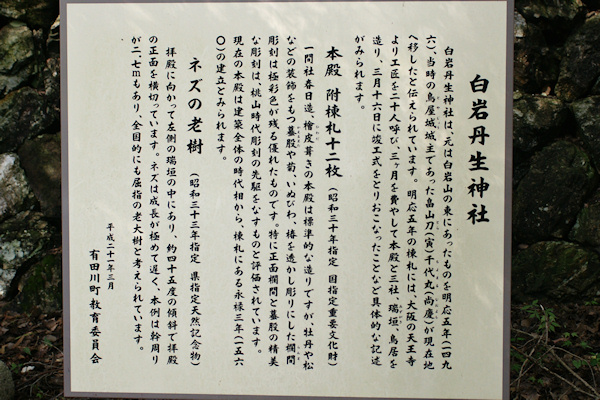 白岩丹生神社
白岩丹生神社は、元は白岩山の東にあったものを明応五年（一四九
六）、当時の鳥屋城城主であった畠山刀（寅）千代丸（尚慶）が現在地
へ移したと伝えられています。明応五年の棟札には、大阪の天王寺
より工匠を二十人呼び、三ヶ月を費やして本殿と三社、瑞垣、鳥居を
造り、三月十六日に竣工式をとりおこなったことなど具体的な記述
がみられます。
本殿 附棟札十二枚 （昭和三十年指定 国指定重要文化財）
一間社春日造、檜皮葺きの本殿は標準的な造りですが、牡丹や松
などの装飾をもつ蟇股や菊、いぬびわ、椿を透かし彫りにした欄間
彫刻は極彩色が残る優れたものです。特に正面欄間と蟇股の精美
な彫刻は、桃山時代彫刻の先駆をなすものと評価されています。
現在の本殿は建築全体の時代相から、棟札にある永禄三年（一五六
〇）の建立とみられます。
ネズの老樹 （昭和三十三年指定 県指定天然記念物）
拝殿に向かって左側の瑞垣の中にあり、約四十五度の傾斜で拝殿
の正面を横切っています。ネズは成長が極めて遅く、本例は幹周り
が二.七mもあり、全国的にも屈指の老大樹と考えられています。
平成二十一年三月
有田川町教育委員会